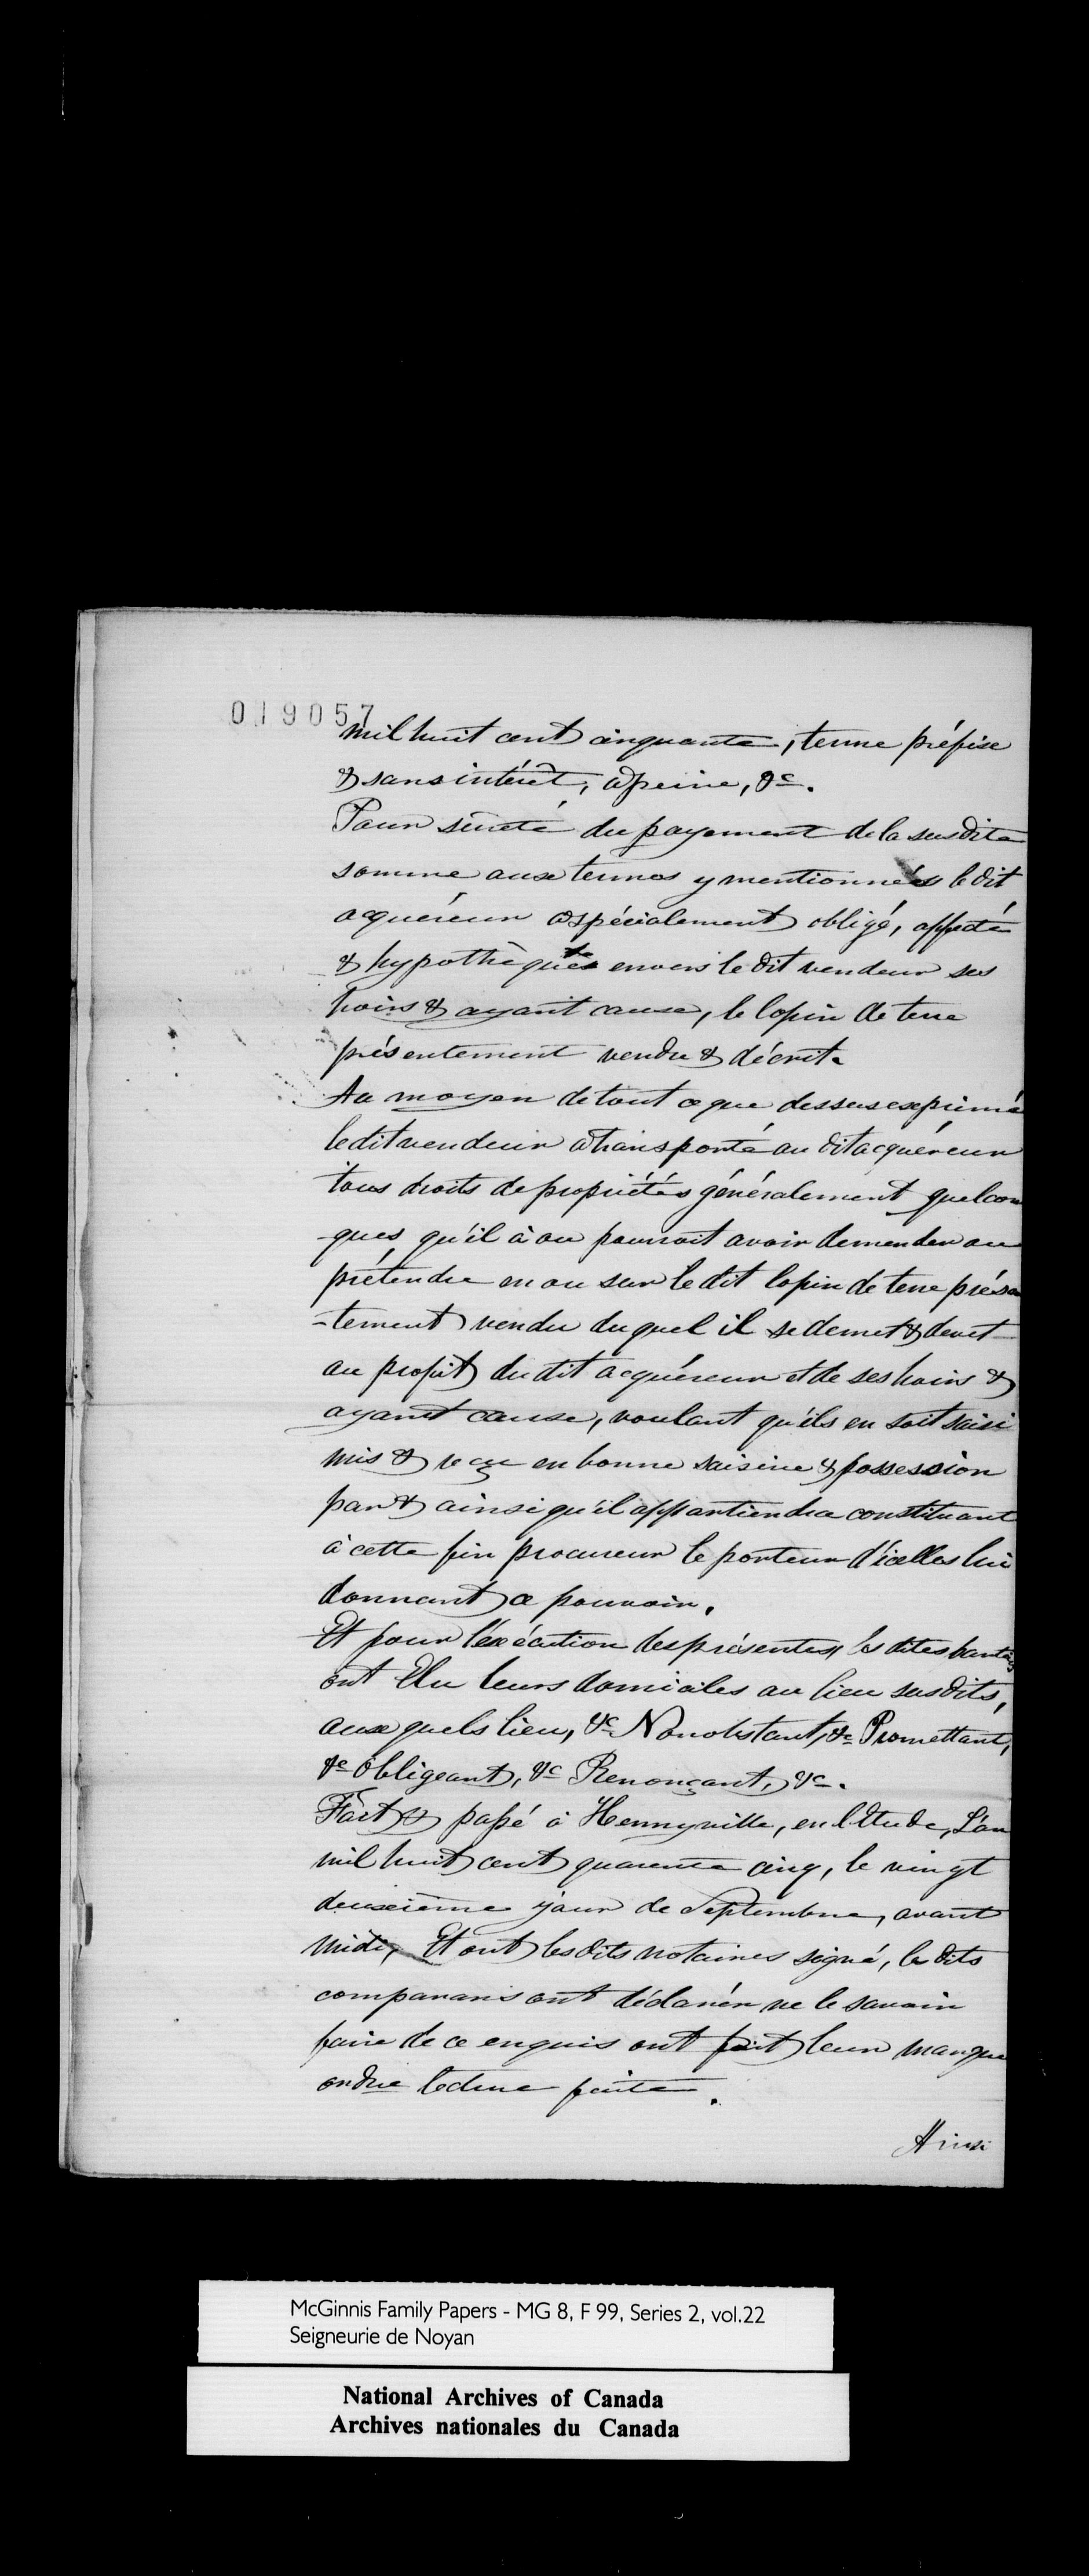 019057
mil huit cent cinquante, terme préfixe
& sans intérêt, à peine, &c.
Pour sûreté du payement de la susdite
somme aux termes y mentionnés le dit
acquéreur a spécialement obligé, affecté
& hypothèqué envers le dit vendeur ses
hoirs & ayant cause, le lopin de terre
présentement vendu & décrit.
Au moyen de tout ce que dessus exprimé
le dit vendeur a transporté au dit acquéreur
tous droits de propriétés généralement quelcon
-ques qu'il à ou pourroit avoir demender ou
prétendre en ou sur le dit lopin de terre présen
-tement vendu duquel il se demet & devet
au profit du dit acquéreur et de ses hoirs &
ayant cause, voulant qu'ils en soit saisi
mis & reçu en bonne saisine & possession
par & ainsi qu'il appartiendra constituant
à cette fin procureur le porteur d'icelles lui
donnant ce pouvoir.
Et pour l'exécution des présentes les dites parties
ont Elu leurs domiciles au lieu susdits,
aux quels lieu, &c Nonobstant, &c Promettant,
&c Obligeant, &c Renonçant, &c.
Fait & passé à Henryville, en l'Etude, L'an
mil huit cent quarente cinq, le vingt
deuxième jour de Septembre, avant
midi, Et ont les dits notaires signé, les dits
comparans ont déclarér ne le savoir
faire de ce enquis ont fait leur marque
ordre lecture faite.
Ainsi
McGinnis Family Papers - MG 8, F 99, Series 2, vol.22
Seigneurie de Noyan
National Archives of Canada
Archives nationales du Canada